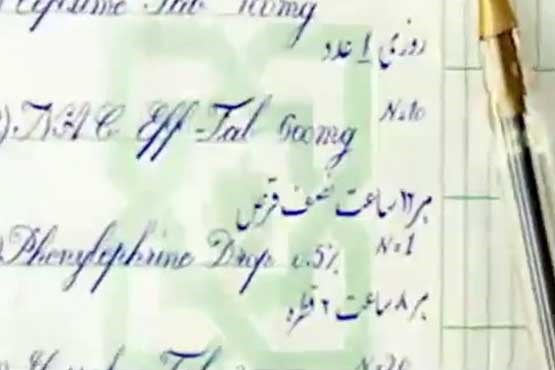 Tab 100mg
روزی ۱ عدد
NAC Eff-Tab 600mg N=10
هر ۱۲ ساعت نصف قرص
Phenylephrine Drop 0.5% N=1
هر ۸ ساعت ۲ قطره
Tab N=20